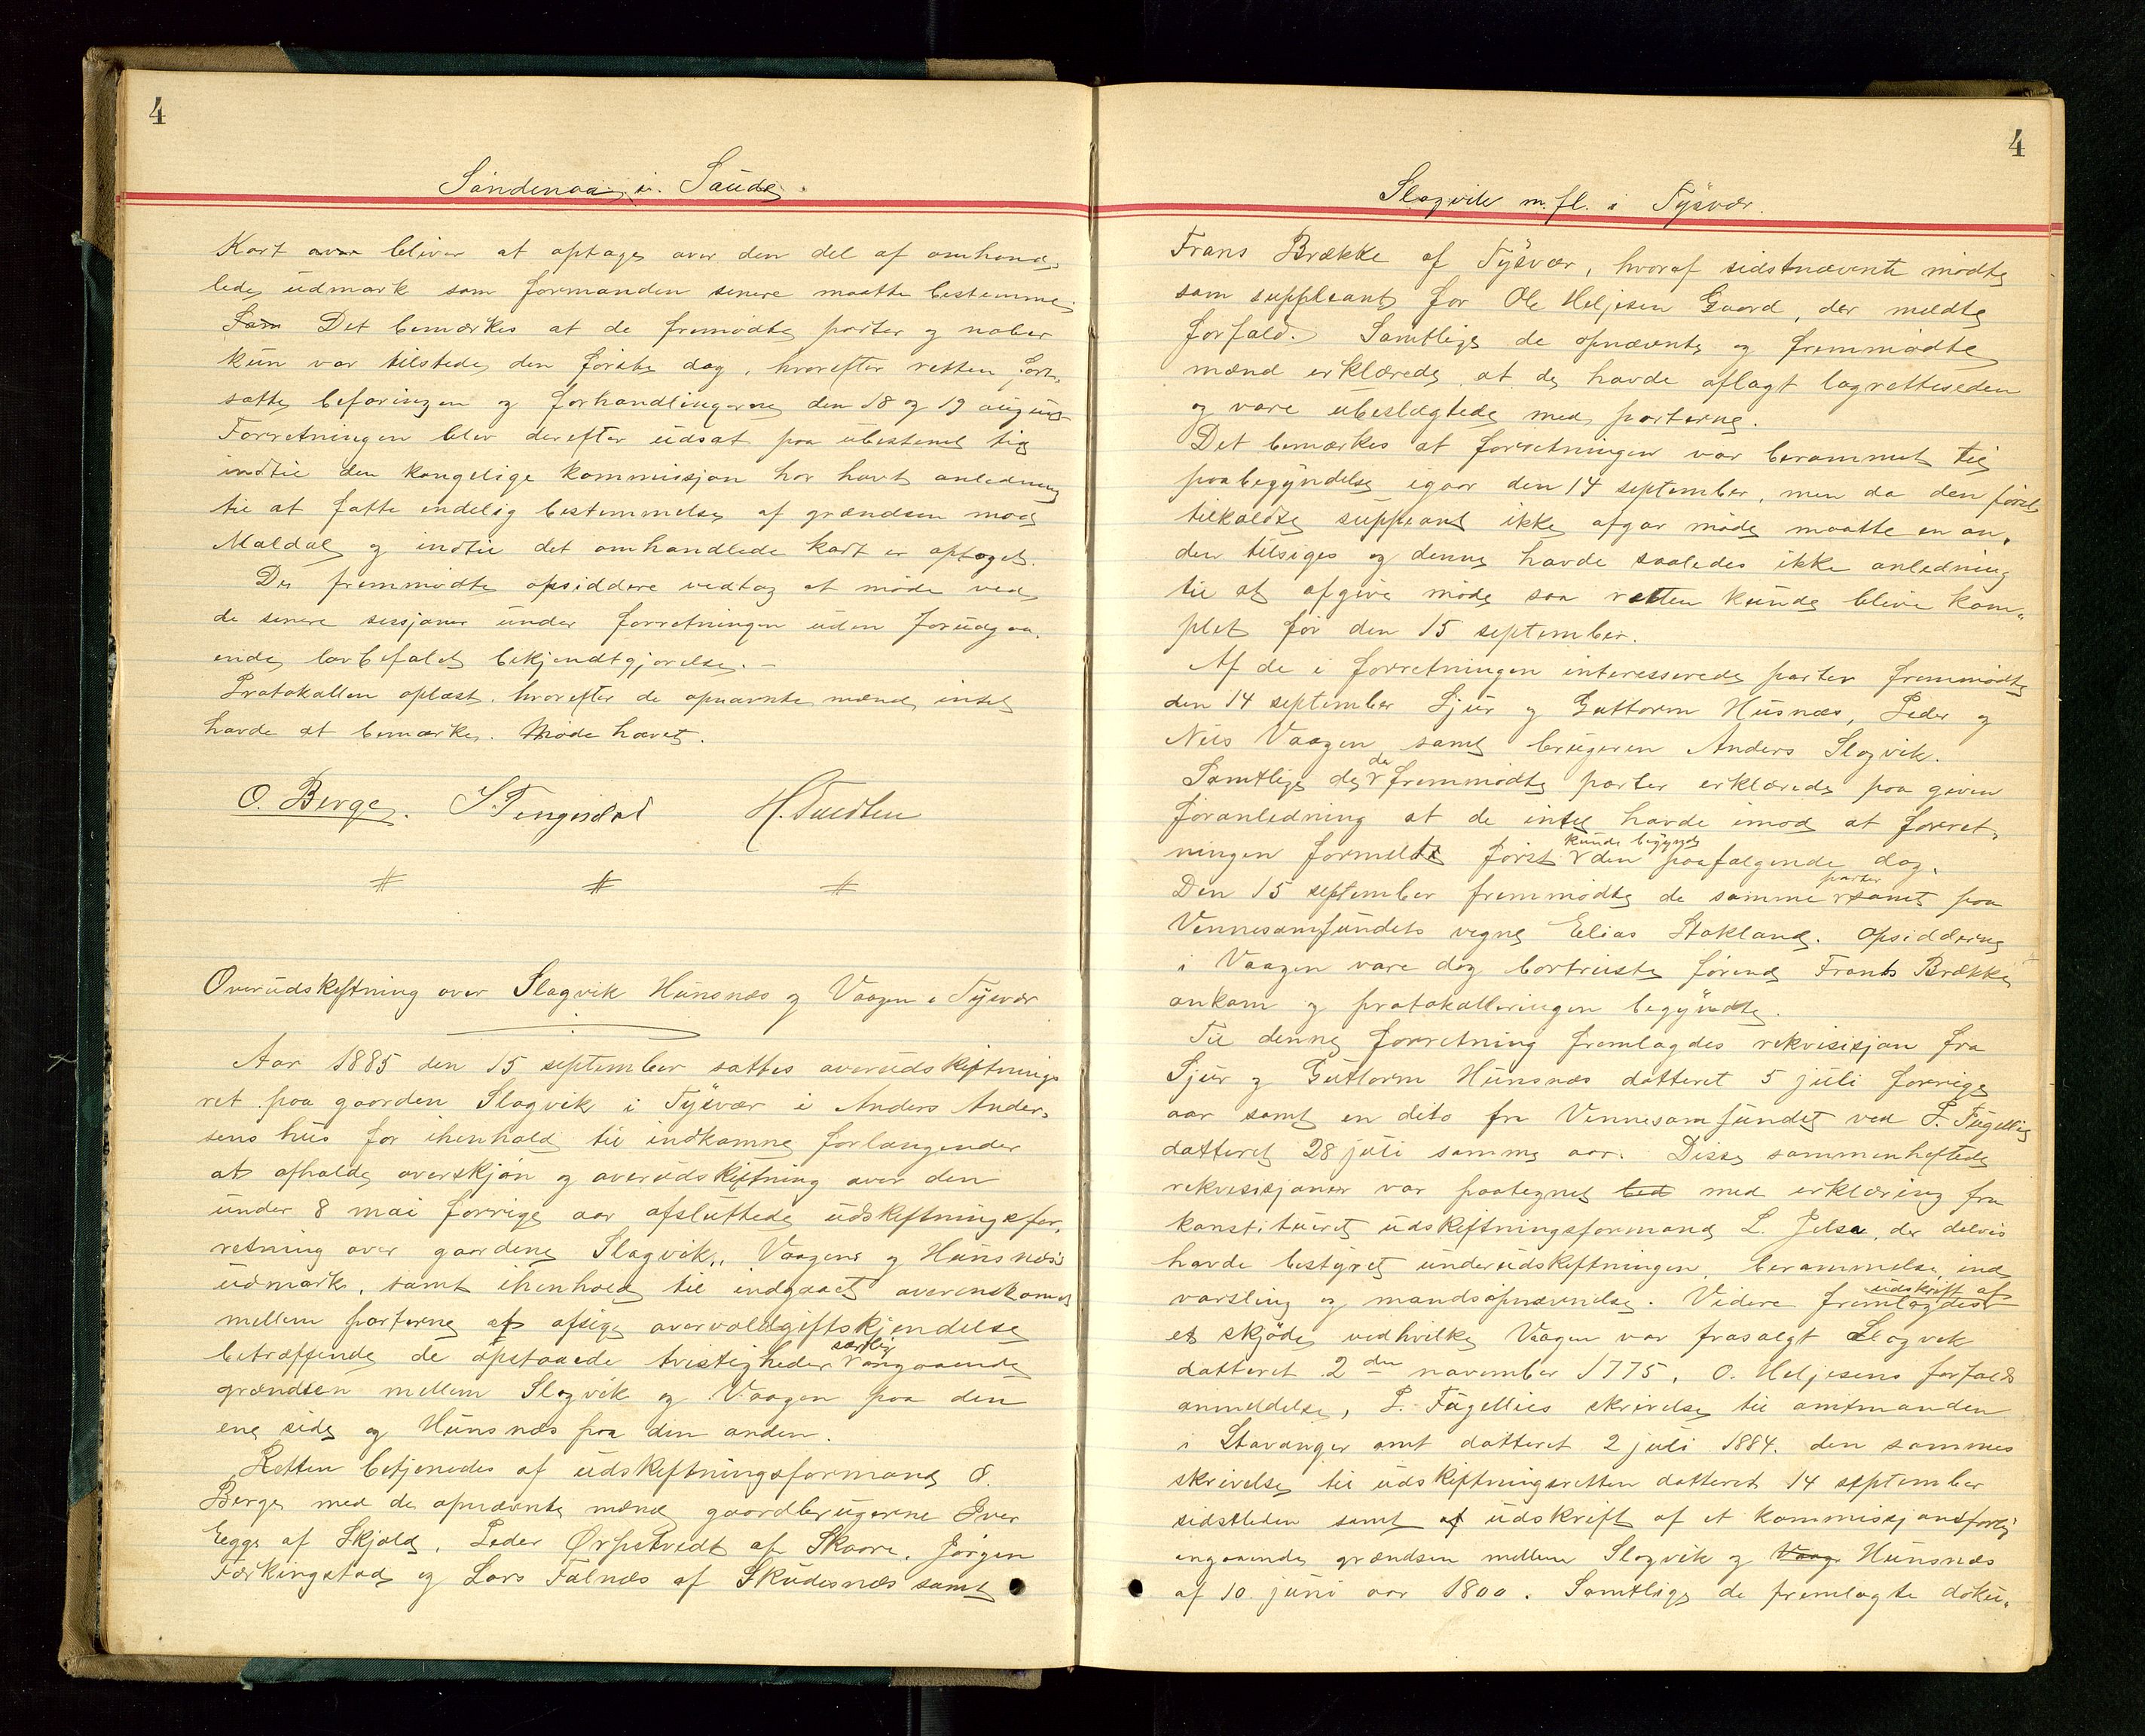 4
Sandenaa i Saude.
Kart over bliver at optages over den del af omhand,
lede udmark som formanden senere maatte bestemme.
Som Det bemærkes at de fremmødte parter og naboer
kun var tilstede den første dag, hvorefter retten fort,
satte befaringen og forhandlingerne den 18 og 19 august
Forretningen blev derefter udsat paa ubestemt tid
indtil den kongelige kommissjon har havt anledning
til at fatte endelig bestemmelse af grændsen mod
Maldal og indtil det omhandlede kart er optaget.
De fremmødte opsiddere vedtog at møde ved
de senere sessjoner under forretningen uden forudgaa,
ende lovbefalet bekjendtgjørelse. –
Protokollen oplæst, hvorefter de opnævnte mænd intet
havde at bemærke. Møde hævet.
O. Berge. S. Tengesdal H. Tuedten
# # #
Overudskiftning over Slogvik Hunsnæs og Vaagen i Tysvær
Aar 1885 den 15 september sattes overudskiftnings
ret paa gaarden Slogvik i Tysvær i Anders Ander,
sens hus for ihenhold til indkomne forlangender
at afholde overskjøn og overudskiftning over den
under 8 mai forrige aar afsluttede udskiftningsfor,
retning over gaardene Slogvik, Vaagens og Hunsnæs's
udmark, samt ihenhold til indgaaet overenskomst
mellem parterne at afsige overvoldgiftskjendelse
betræffende de opstaaede tvistigheder særlig angaaende
grændsen mellem Slogvik og Vaagen paa den
ene side og Hunsnæs paa den anden.
Retten betjenedes af udskiftningsformand O.
Berge med de opnævnte mænd gaardbrugerne Iver
Egge af Skjold, Peder Ørpetvedt af Skaare, Jørgen
Færkingstad og Lars Falnæs af Skudesnæs samt
4
Slogvik m.fl. i Tysvær.
Frans Brække af Tysvær, hvoraf sidstnævnte mødte
som suppleant for Ole Heljesen Gaard, der meldte
forfald. Samtlige de opnævnte og fremmødte
mænd erklærede at de havde aflagt lagretteseden
og vare ubeslægtede med parterne.
Det bemærkes at forretningen var berammet til
paabegyndelse igaar den 14 september, men da den først
tilkaldte suppleant ikke afgav møde maatte en an,
den tilsiges og denne havde saaledes ikke anledning
til at afgive møde saa retten kunde blive kom,
plet før den 15 september.
Af de i forretningen interesserede parter fremmødte
den 14 september Sjur og Guttorm Husnæs, Peder og
Nils Vaagen, samt brugeren Anders Slogvik.
Samtlige de da fremmødte parter erklærede paa given
foranledning at de intet havde imod at forret,
ningen formelt først kunde begynde den paafølgende dag.
Den 15 september fremmødte de samme parter samt paa
Vennesamfundets vegne Elias Stokland. Opsidderne
i Vaagen vare dog bortreiste førend Frants Brække
ankom og protokolleringen begyndte.
Til denne forretning fremlagdes rekvisisjon fra
Sjur og Guttorm Hunsnæs datteret 5 juli forrige
aar samt en dito fra Vennesamfundet ved P. Fugellie
datteret 28 juli samme aar. Disse sammenheftede
rekvisisjoner var paategnet med erklæring fra
konstitueret udskiftningsformand L. Jelsa, der delvis
havde bestyret underudskiftningen, berammelse, ind
varsling og mandsopnævnelse. Videre fremlagdes udskrift af
et skjøde vedhvilke Vaagen var frasolgt Slogvik
datteret 2den november 1775, O. Heljesens forfalds
anmeldelse, P. Fugellies skrivelse til amtmanden
i Stavanger amt datteret 2 juli 1884. den sammes
skrivelse til udskiftningsretten datteret 14 september
sidstleden samt udskrift af et kommissjonsforlig
angaaende grændsen mellem Slogvik og Vaag Hunsnæs
af 10 juni aar 1800. Samtlige de fremlagte doku,